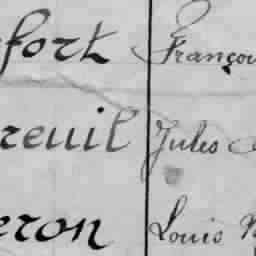 fort Françoi
reuil Jules
eron Louis